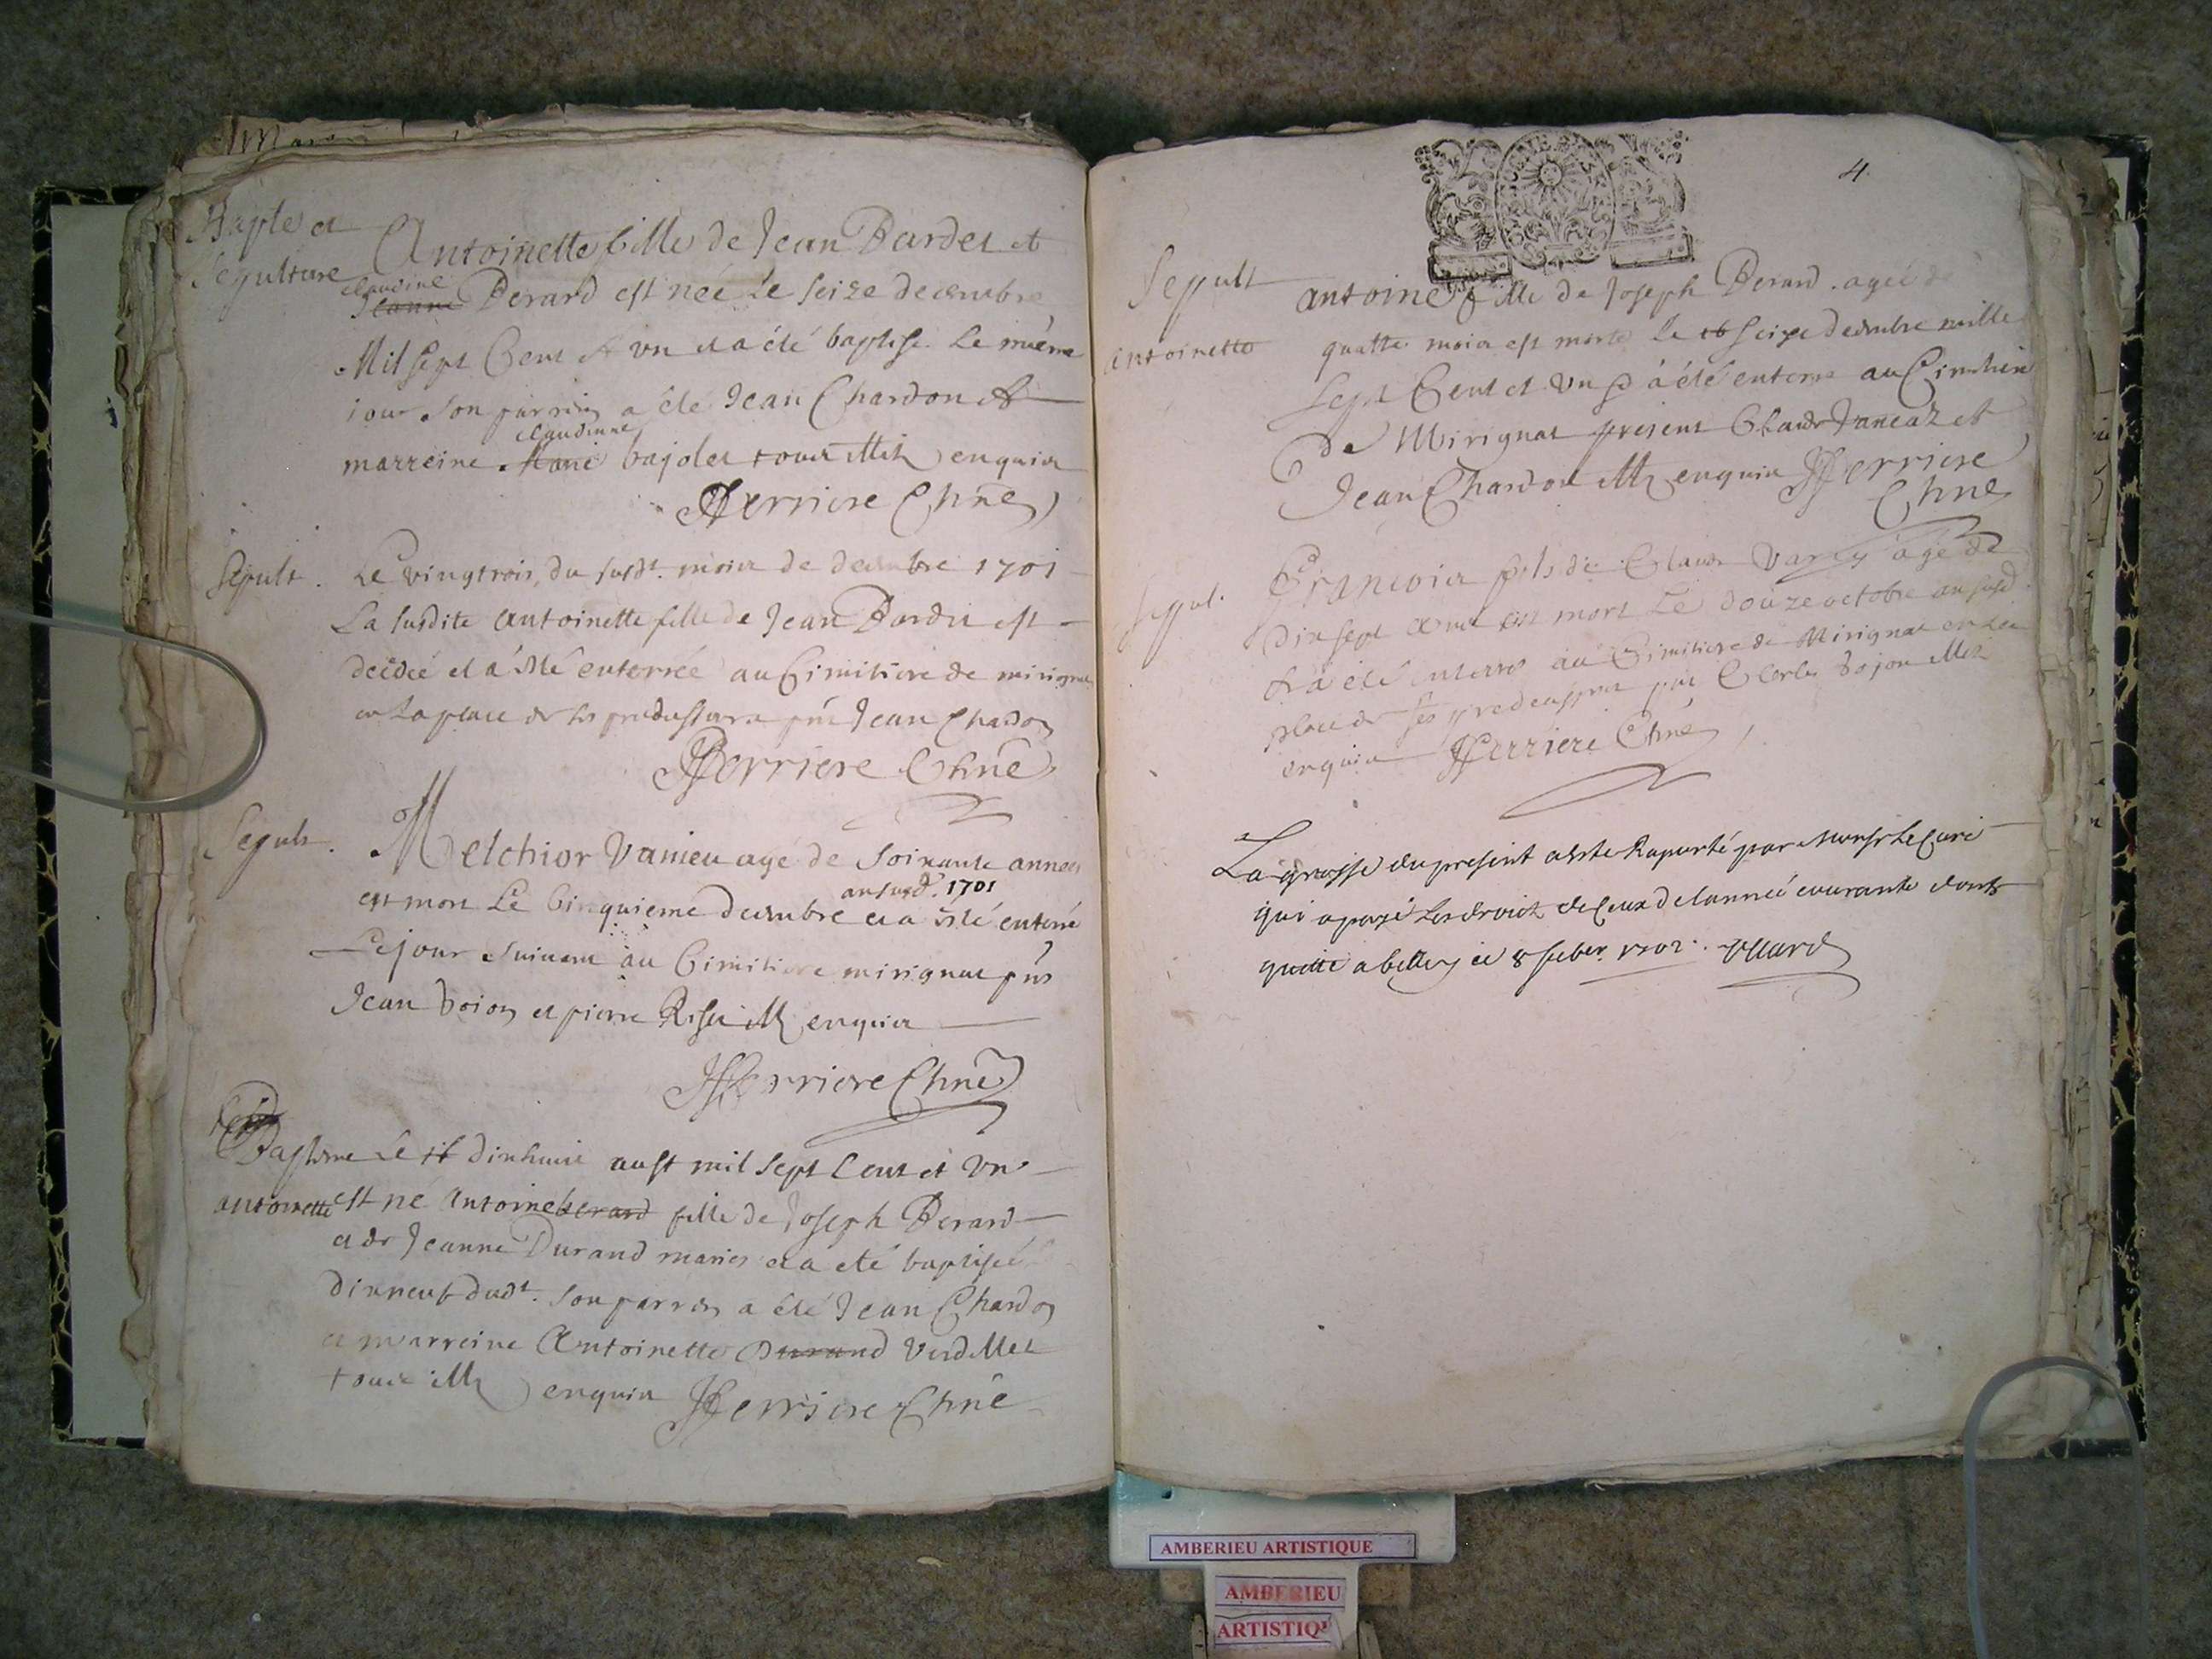 Bapte et
Sepulture
Antoinette fille de Jean Bardet et
claudine
Jeanne Berard est née Le seize decembre
Mil sept Cent et vn et a été baptisé Le même
jour son parrin a été Jean Chardon et
claudinne
marreine Marie bajolet tous illit enquis
fferriere Chñe
Sepult. Le vingtrois du susdt. mois de decembre 1701
La susdite antoinette fille de Jean Bardet est
decedée et a été enterrée au Cimitiere de mirignat
en La place de ses predesseurs pñt Jean Chardon
fferriere Chñe
Sepult. Melchior Vanieu agé de Soixante années
ansusd. 1701
est mort Le Cinquieme decembre et a été enterré
Le jour suivant au Cimitiere mirignat pñs
Jean boion et pierre ill enquis
fferriere Chñe
Baptême Le 18 dixhuit aust mil sept Cent et Vn
antoinette est né Antoine berard fille de Joseph Berard
et de Jeanne Durand mariés et a eté baptisée
dixneuf dudt. son parrin a été Jean Chardon
et marreine Antoinette Durand Verdellet
tous ill enquis fferriere Chñe
4
Sepult
antoinette
antoine fille de Joseph Berard agée de
quatte mois est morte Le 16 seize decembre mille
Sept Cent et Vn a été enterre au Cimitiere
de Mirignat present Claude Jancaz et
Jean Chardon ill enquis fferriere
Chñe
Sepul. Francois fils de Claude Varey agé de
dixsept ans est mort Le douze octobre an susd
et a été enterré au Cimitiere de Mirignat en La
place de ses predecesseurs pñt bojon illit
enquis fferriere Chñe
La grosse du present a esté Raporté par monsr Le Curé
qui a payé Les droicts de Ceux de lanneé courante dont
quitte a belley ce 8 feber. 1702.
AMBERIEU ARTISTIQUE
AMBERIEU
ARTISTIQU